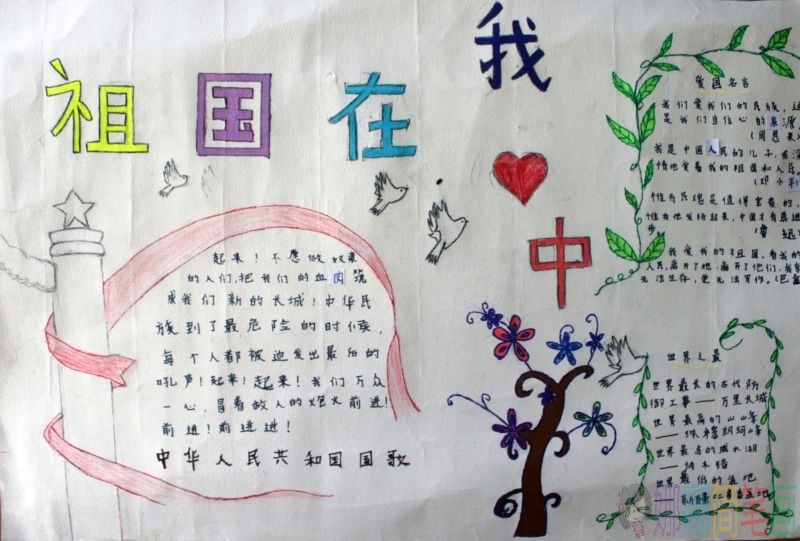 祖国在我
中
起来！不愿做奴隶
的人们，把我们的血肉筑
成我们新的长城！中华民
族到了最危险的时候，
每个人都被迫发出最后的
吼声！起来！起来！我们万众
一心，冒着敌人的炮火前进！
前进！前进进！
中华人民共和国国歌
爱国名言
我们爱我们的民族，这
是我们自信心的泉源
（周恩来
我是中国人民的儿子，我深
情地爱着我的祖国和人民。
（邓小
惟有民魂是值得宝贵的，
惟有他发扬起来，中国才有真进
步。（鲁迅
我爱我的祖国，爱我的
人民，离开了她，离开了他们，我
无法生存，更无法写作。（巴金
世界之最
世界最长的古代防
御工事——万里长城
世界最高的山峰
——珠穆朗玛峰
世界最高的咸水湖
——纳木错
世界最低的盆地
新疆吐鲁番盆地
简笔画